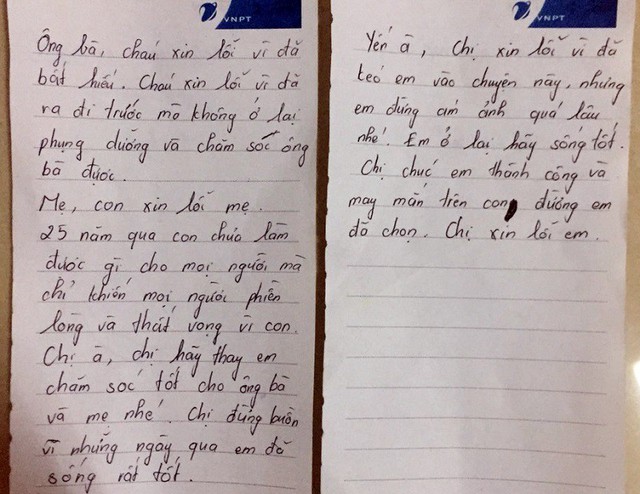 VNPT
Ông bà, cháu xin lỗi vì đã
bất hiếu. Cháu xin lỗi vì đã
ra đi trước mà không ở lại
phụng dưỡng và chăm sóc ông
bà được.
Mẹ, con xin lỗi mẹ.
25 năm qua con chưa làm
được gì cho mọi người mà
chỉ khiến mọi người phiền
lòng và thất vọng vì con.
Chị à, chị hãy thay em
chăm sóc tốt cho ông bà
và mẹ nhé. Chị đừng buồn
vì những ngày qua em đã
sống rất tốt.
VNPT
Yến à, Chị xin lỗi vì đã
kéo em vào chuyện này, nhưng
em đừng ám ảnh quá lâu
nhé. Em ở lại hãy sống tốt.
Chị chúc em thành công và
may mắn trên con đường em
đã chọn. Chị xin lỗi em.